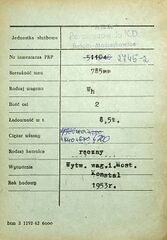 Jednostka służbowa
Nr inwentarza PKP 2745-2
Szerokość toru 785mm
Rodzaj wagonu Wh
Ilość osi 2
Ładowność w t. 8,5t.
Ciężar własny
Rodzaj hamulca ręczny
Wytwórnia Wytw. wag. i Most.
Konstal
Rok budowy 1953r.